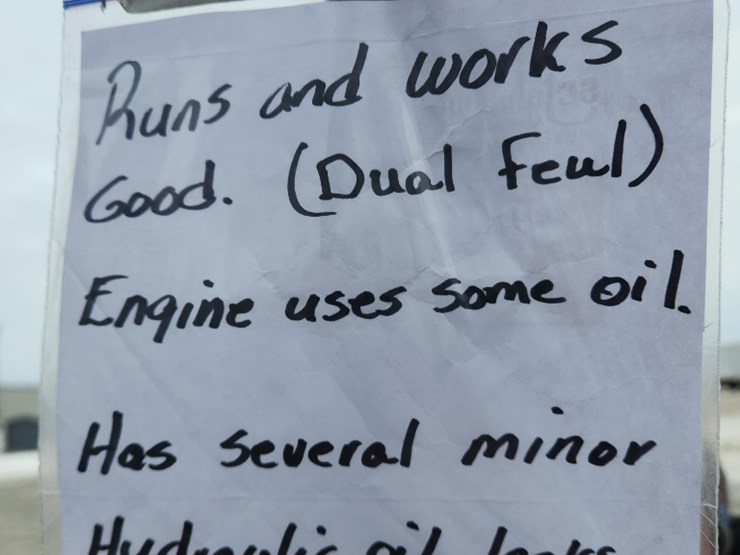 Runs and works
Good. (Dual feul)
Engine uses some oil.
Has several minor
Hydraulic oil leaks